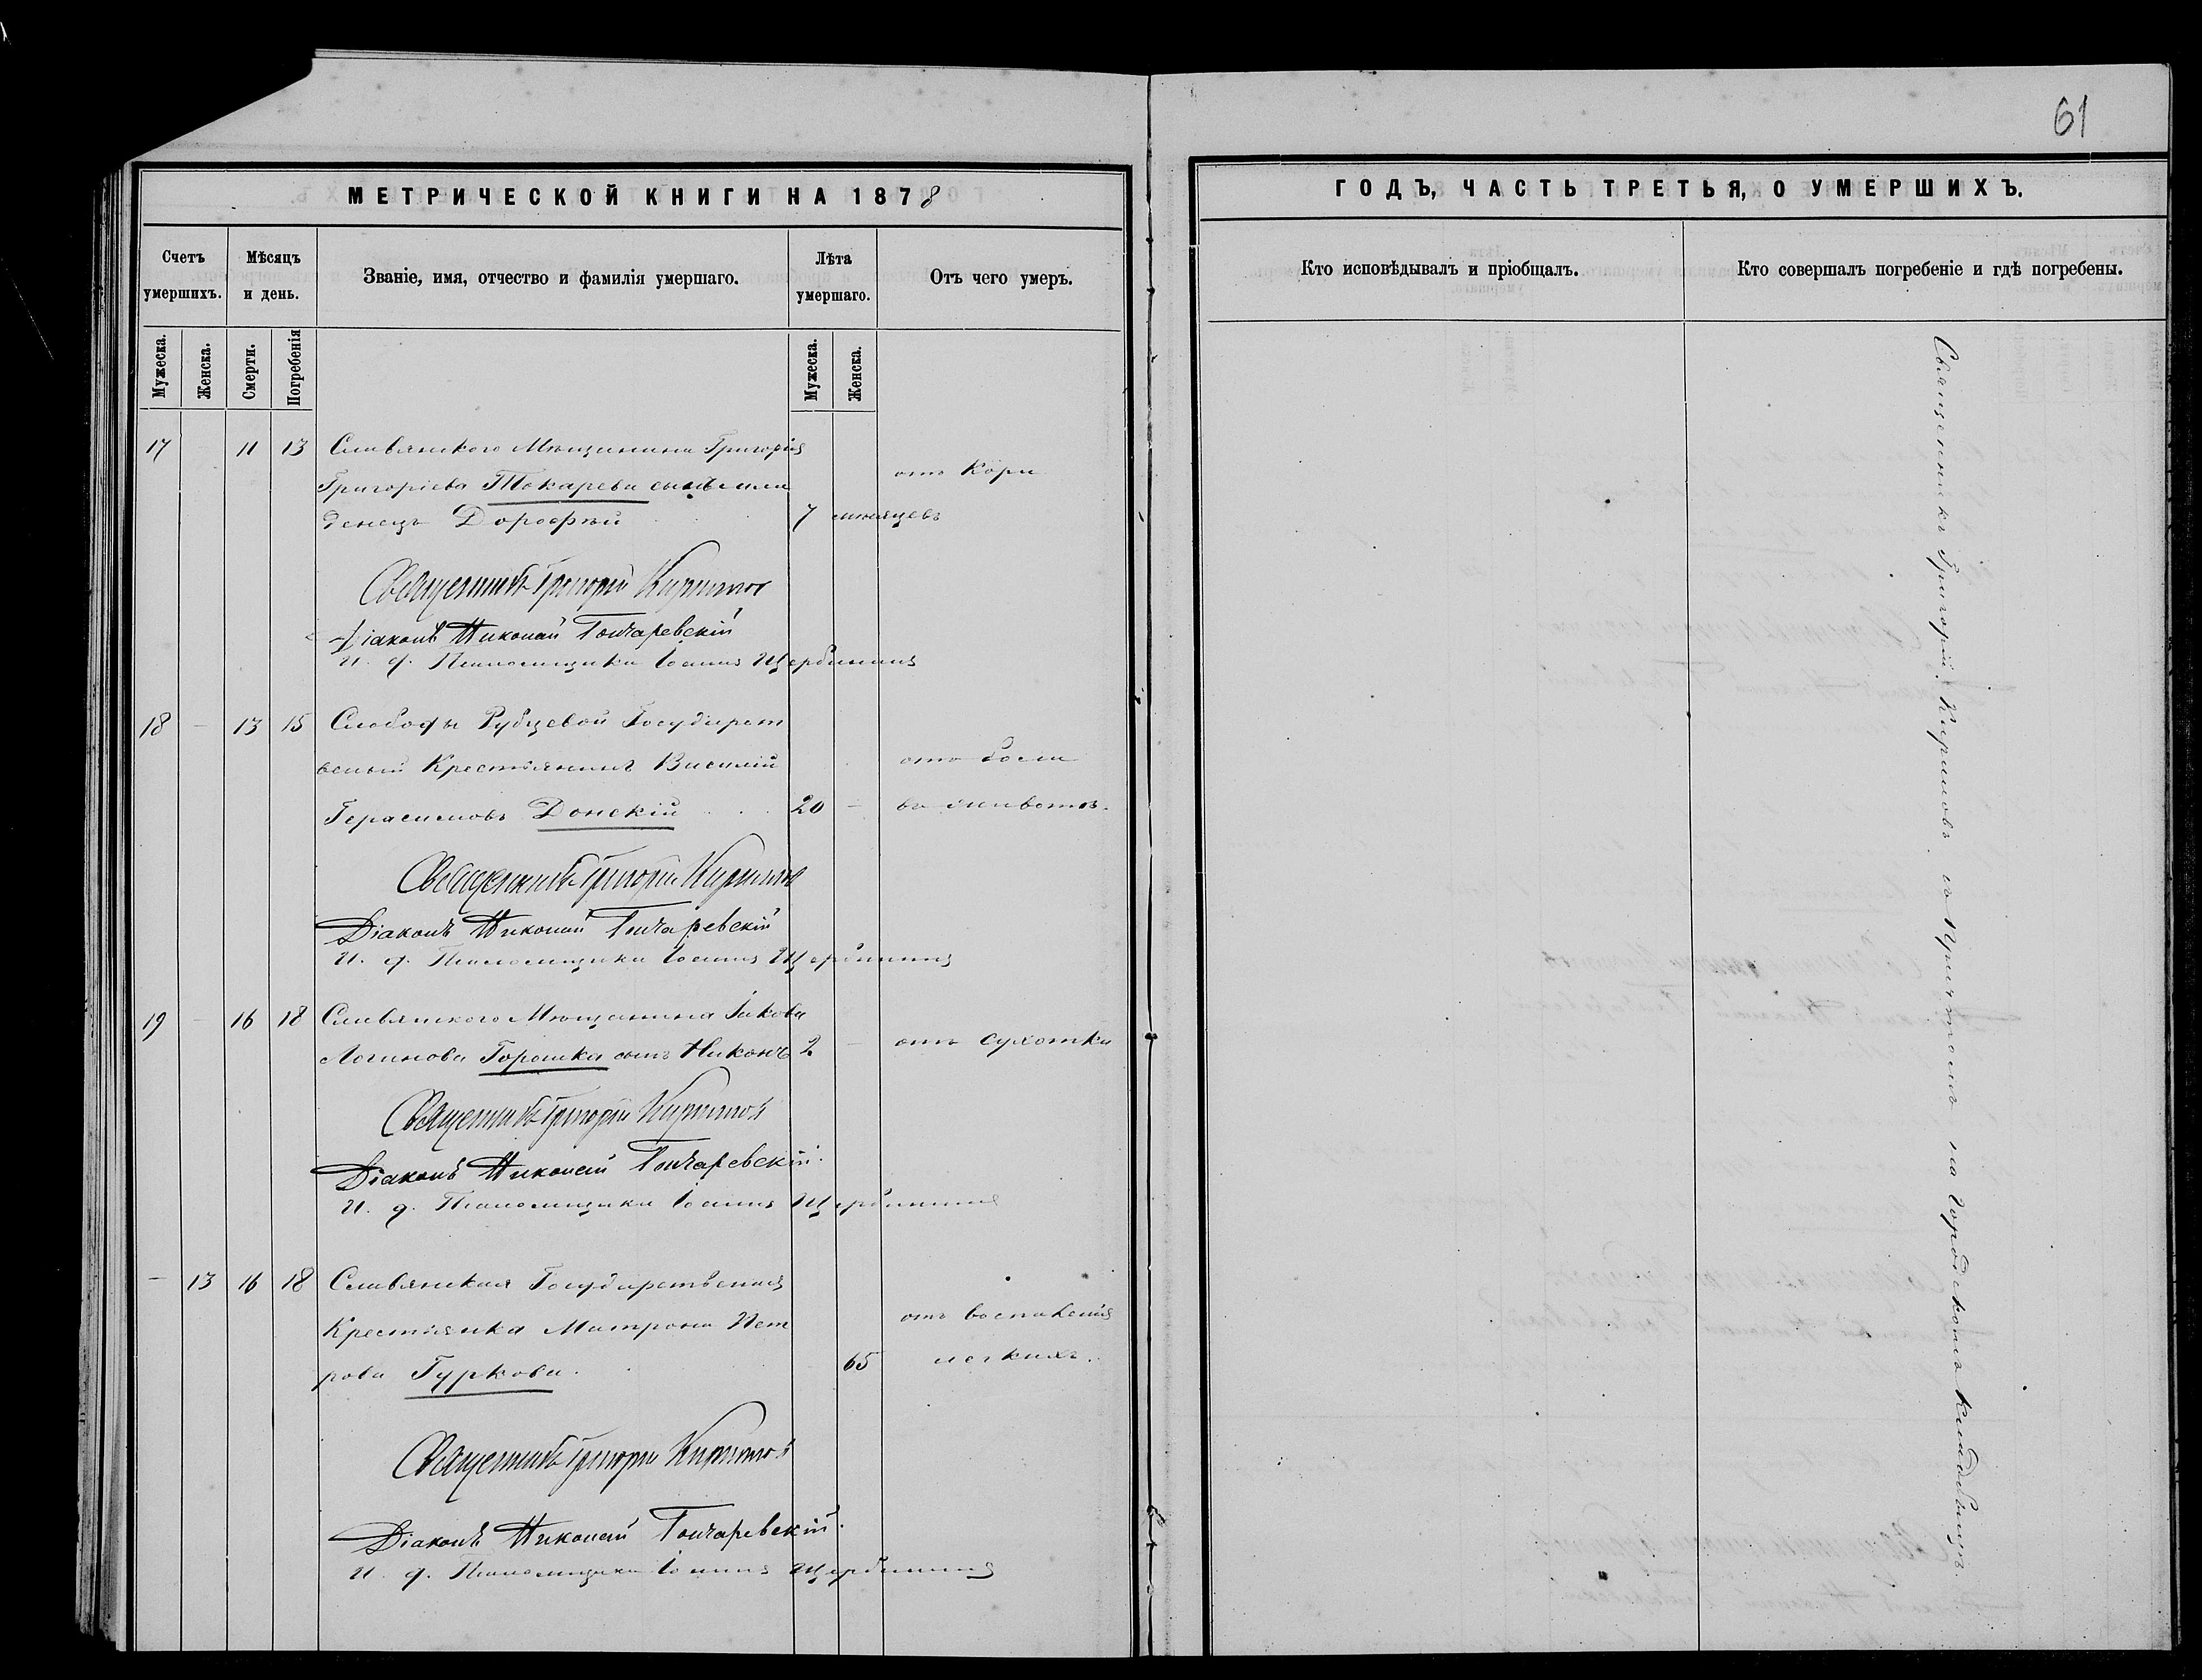 61
МЕТРИЧЕСКОЙ КНИГИ НА 1878
ГОДЪ, ЧАСТЬ ТРЕТЬЯ, О УМЕРШИХЪ.
Счетъ умершихъ.
Мѣсяцъ и день.
Званіе, имя, отчество и фамилія умершаго.
Лѣта умершаго.
Отъ чего умеръ.
Кто исповѣдывалъ и пріобщалъ.
Кто совершалъ погребеніе и гдѣ погребены.
Мужеска.
Женска.
Смерти.
Погребенія
Мужеска.
Женска.
17 - 11 13 Славянскаго Мѣщанина Григорія
Григоріева Токарева сынъ мла
денецъ Дороѳей 7 мѣсяцевъ
отъ Кори
Священникъ Григорій Кириллов
Діаконъ Николай Гончаревскій
И. д. Псаломщика Іоаннъ Щербининъ
18 - 13 15 Слободы Рубцевой Государст
веный Крестьянинъ Василій
Герасимовъ Донскій 20 -
отъ боли
въ животѣ.
Священникъ Григорій Кириллов
Діаконъ Николай Гончаревскій
И. д. Псаломщика Іоаннъ Щербининъ
19 - 16 18 Славянского Мѣщанина Іакова
Логинова Горошка сынъ Никонъ 2 - отъ сухотки
Священникъ Григорій Кириллов
Діаконъ Николай Гончаревскій.
И. д. Псаломщика Іоаннъ Щербининъ
- 13 16 18 Славянская Государственая
Крестьянка Матрона Пет
рова Гуркова. 65
отъ воспаленія
легкихъ.
Священникъ Григорій Кириллов
Діаконъ Николай Гончаревскій.
И. д. Псаломщика Іоаннъ Щербининъ
Священникъ Григорій Кирилловъ съ Причтомъ на Городскомъ кладбищѣ.